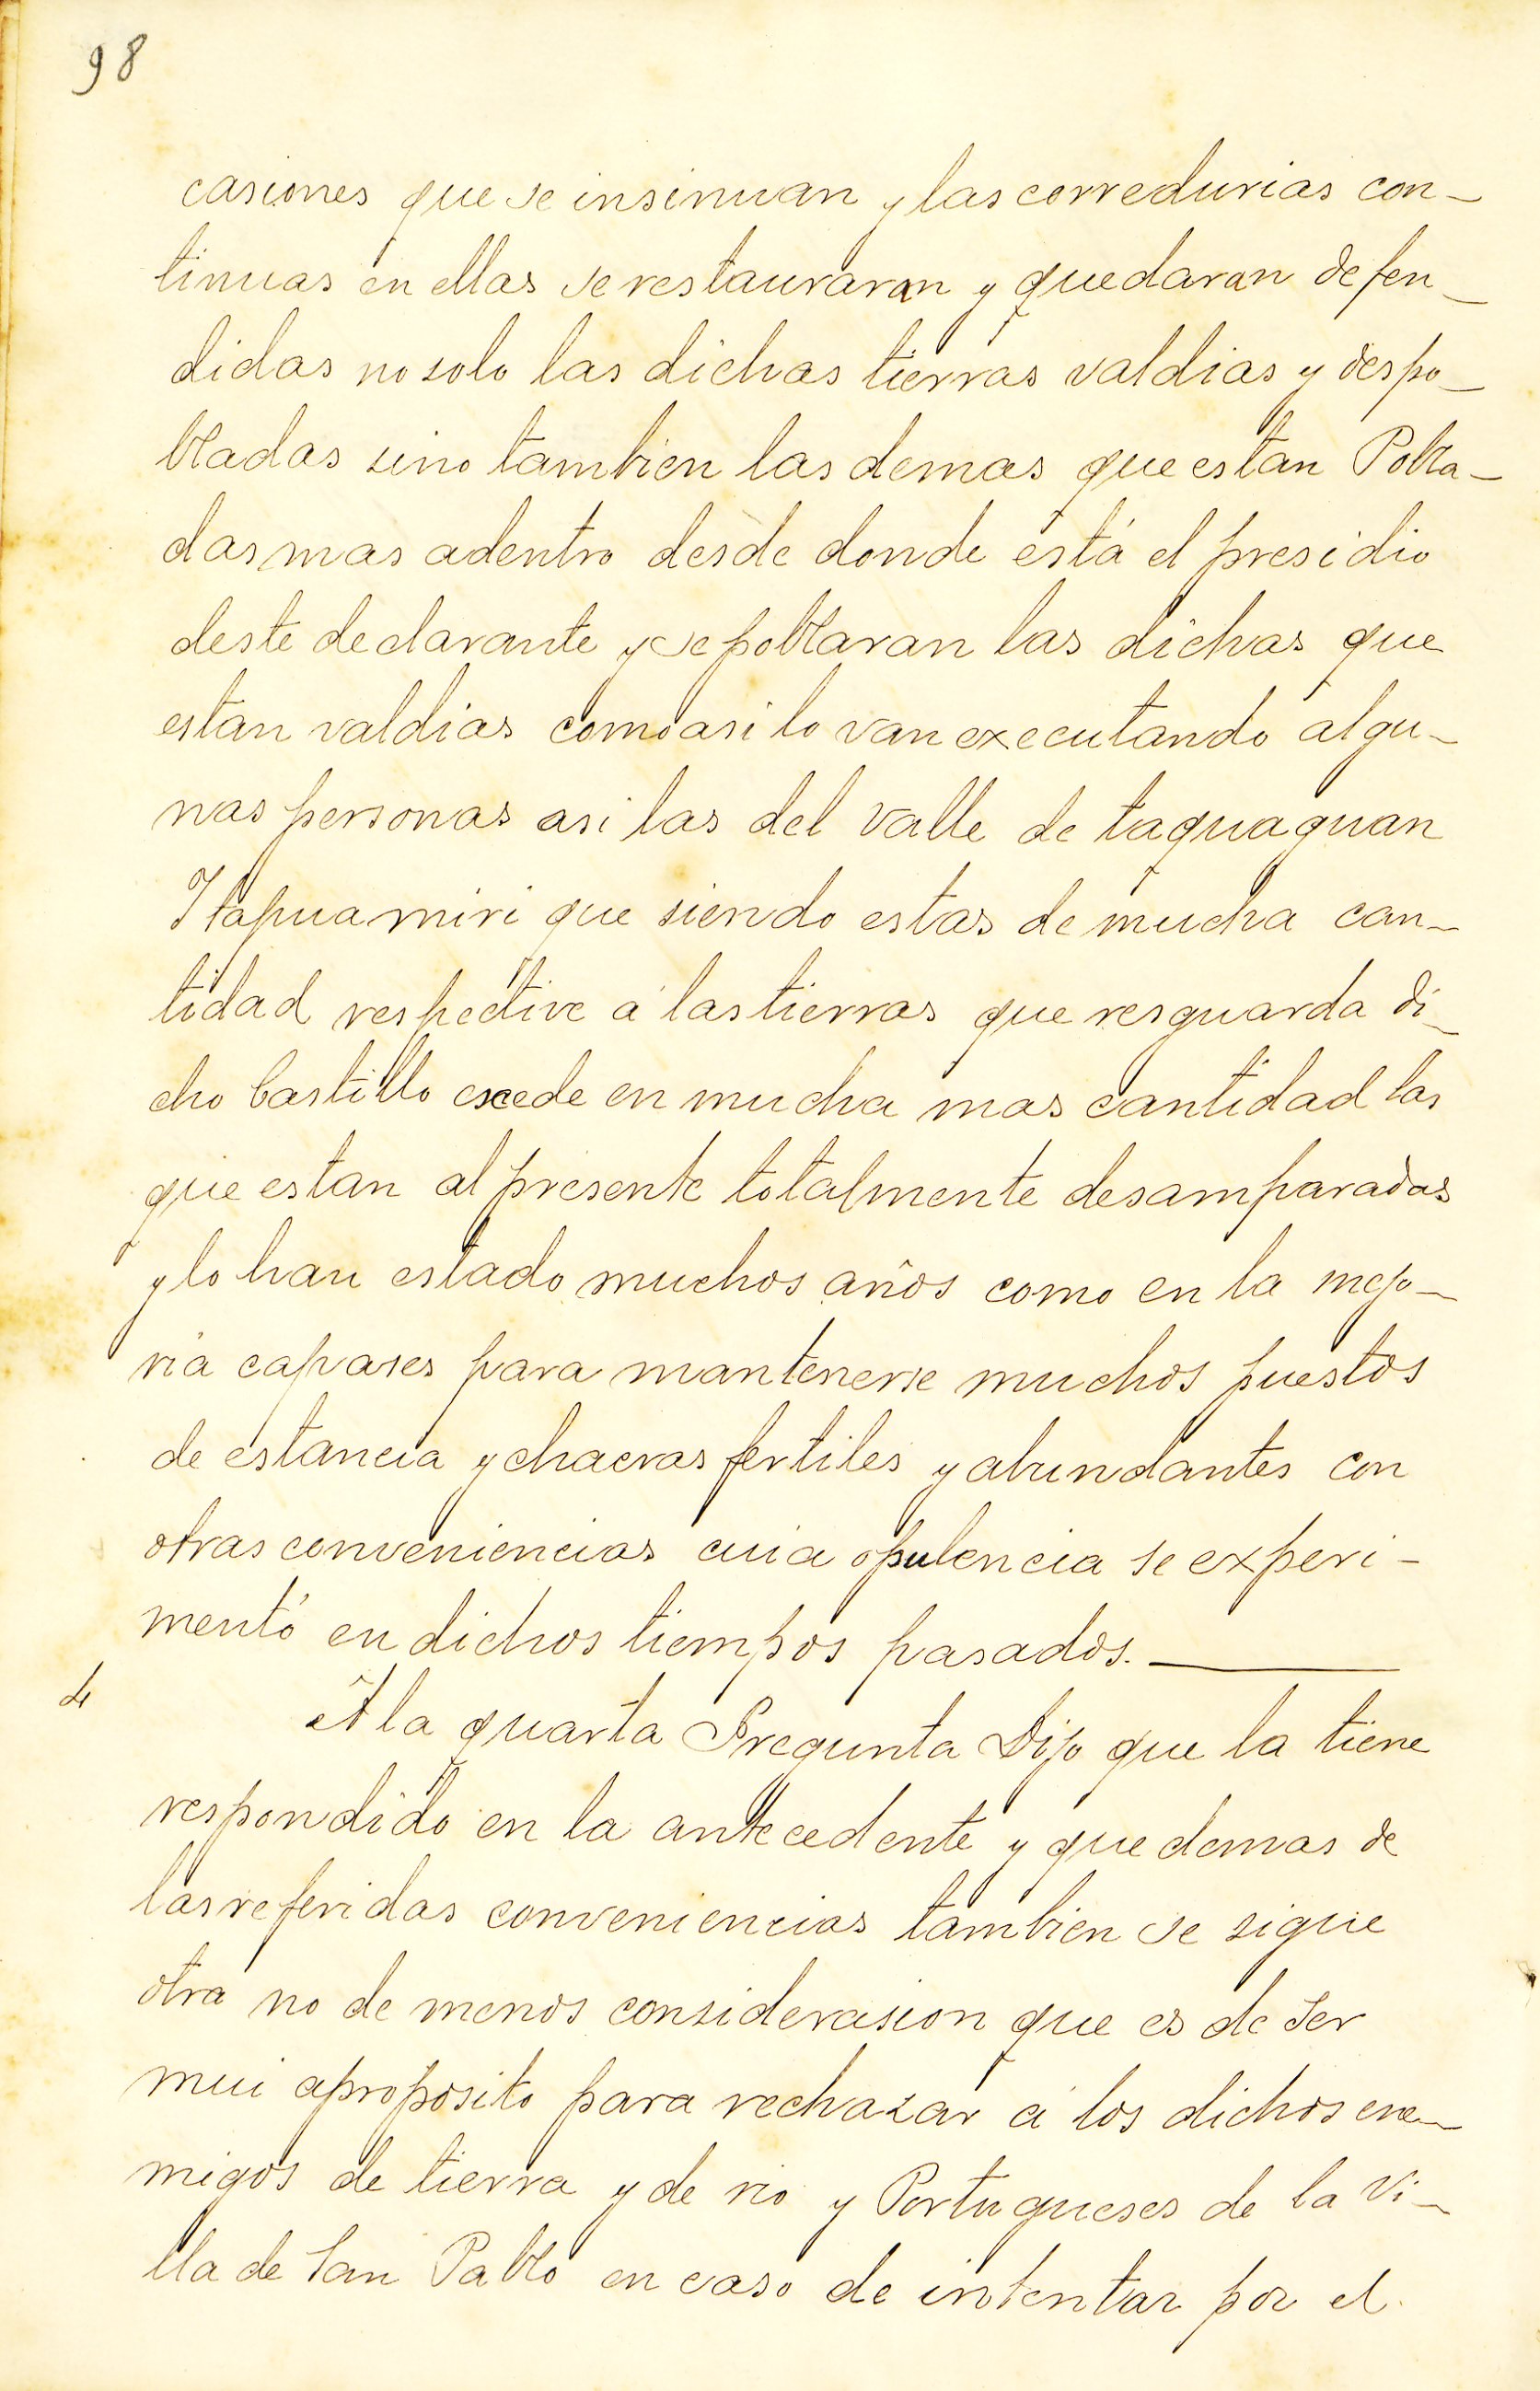 98
casiones que se insinuan y las corredurias con-
tinuas en ellas se restauraran y quedaran defen-
didas no solo las dichas tierras valdias y despo-
bladas sino tambien las demas que estan Pobla-
das mas adentro desde donde está el presidio
deste declarante y se poblaran las dichas que
estan valdias como asi lo van executando algu-
nas personas asi las del valle de taquaguan
Itapuamiri que siendo estas de mucha can-
tidad respective á las tierras que resguarda di-
cho Castillo escede en mucha mas cantidad las
que estan al presente totalmente desamparadas
y lo han estado muchos años como en la mejo-
ria capases para mantenerse muchos puestos
de estancia y chacras fertiles y abundantes con
otras conveniencias cuia opulencia se experi-
mentó en dichos tiempos pasados.
4 A la quarta Pregunta Dijo que la tiene
respondido en la antecedente y que demas de
las referidas conveniencias tambien se sigue
otra no de menos considerasion que es de ser
mui aproposito para rechazar á los dichos ene-
migos de tierra y de rio y Portugueses de la Vi-
lla de San Pablo en caso de intentar por el